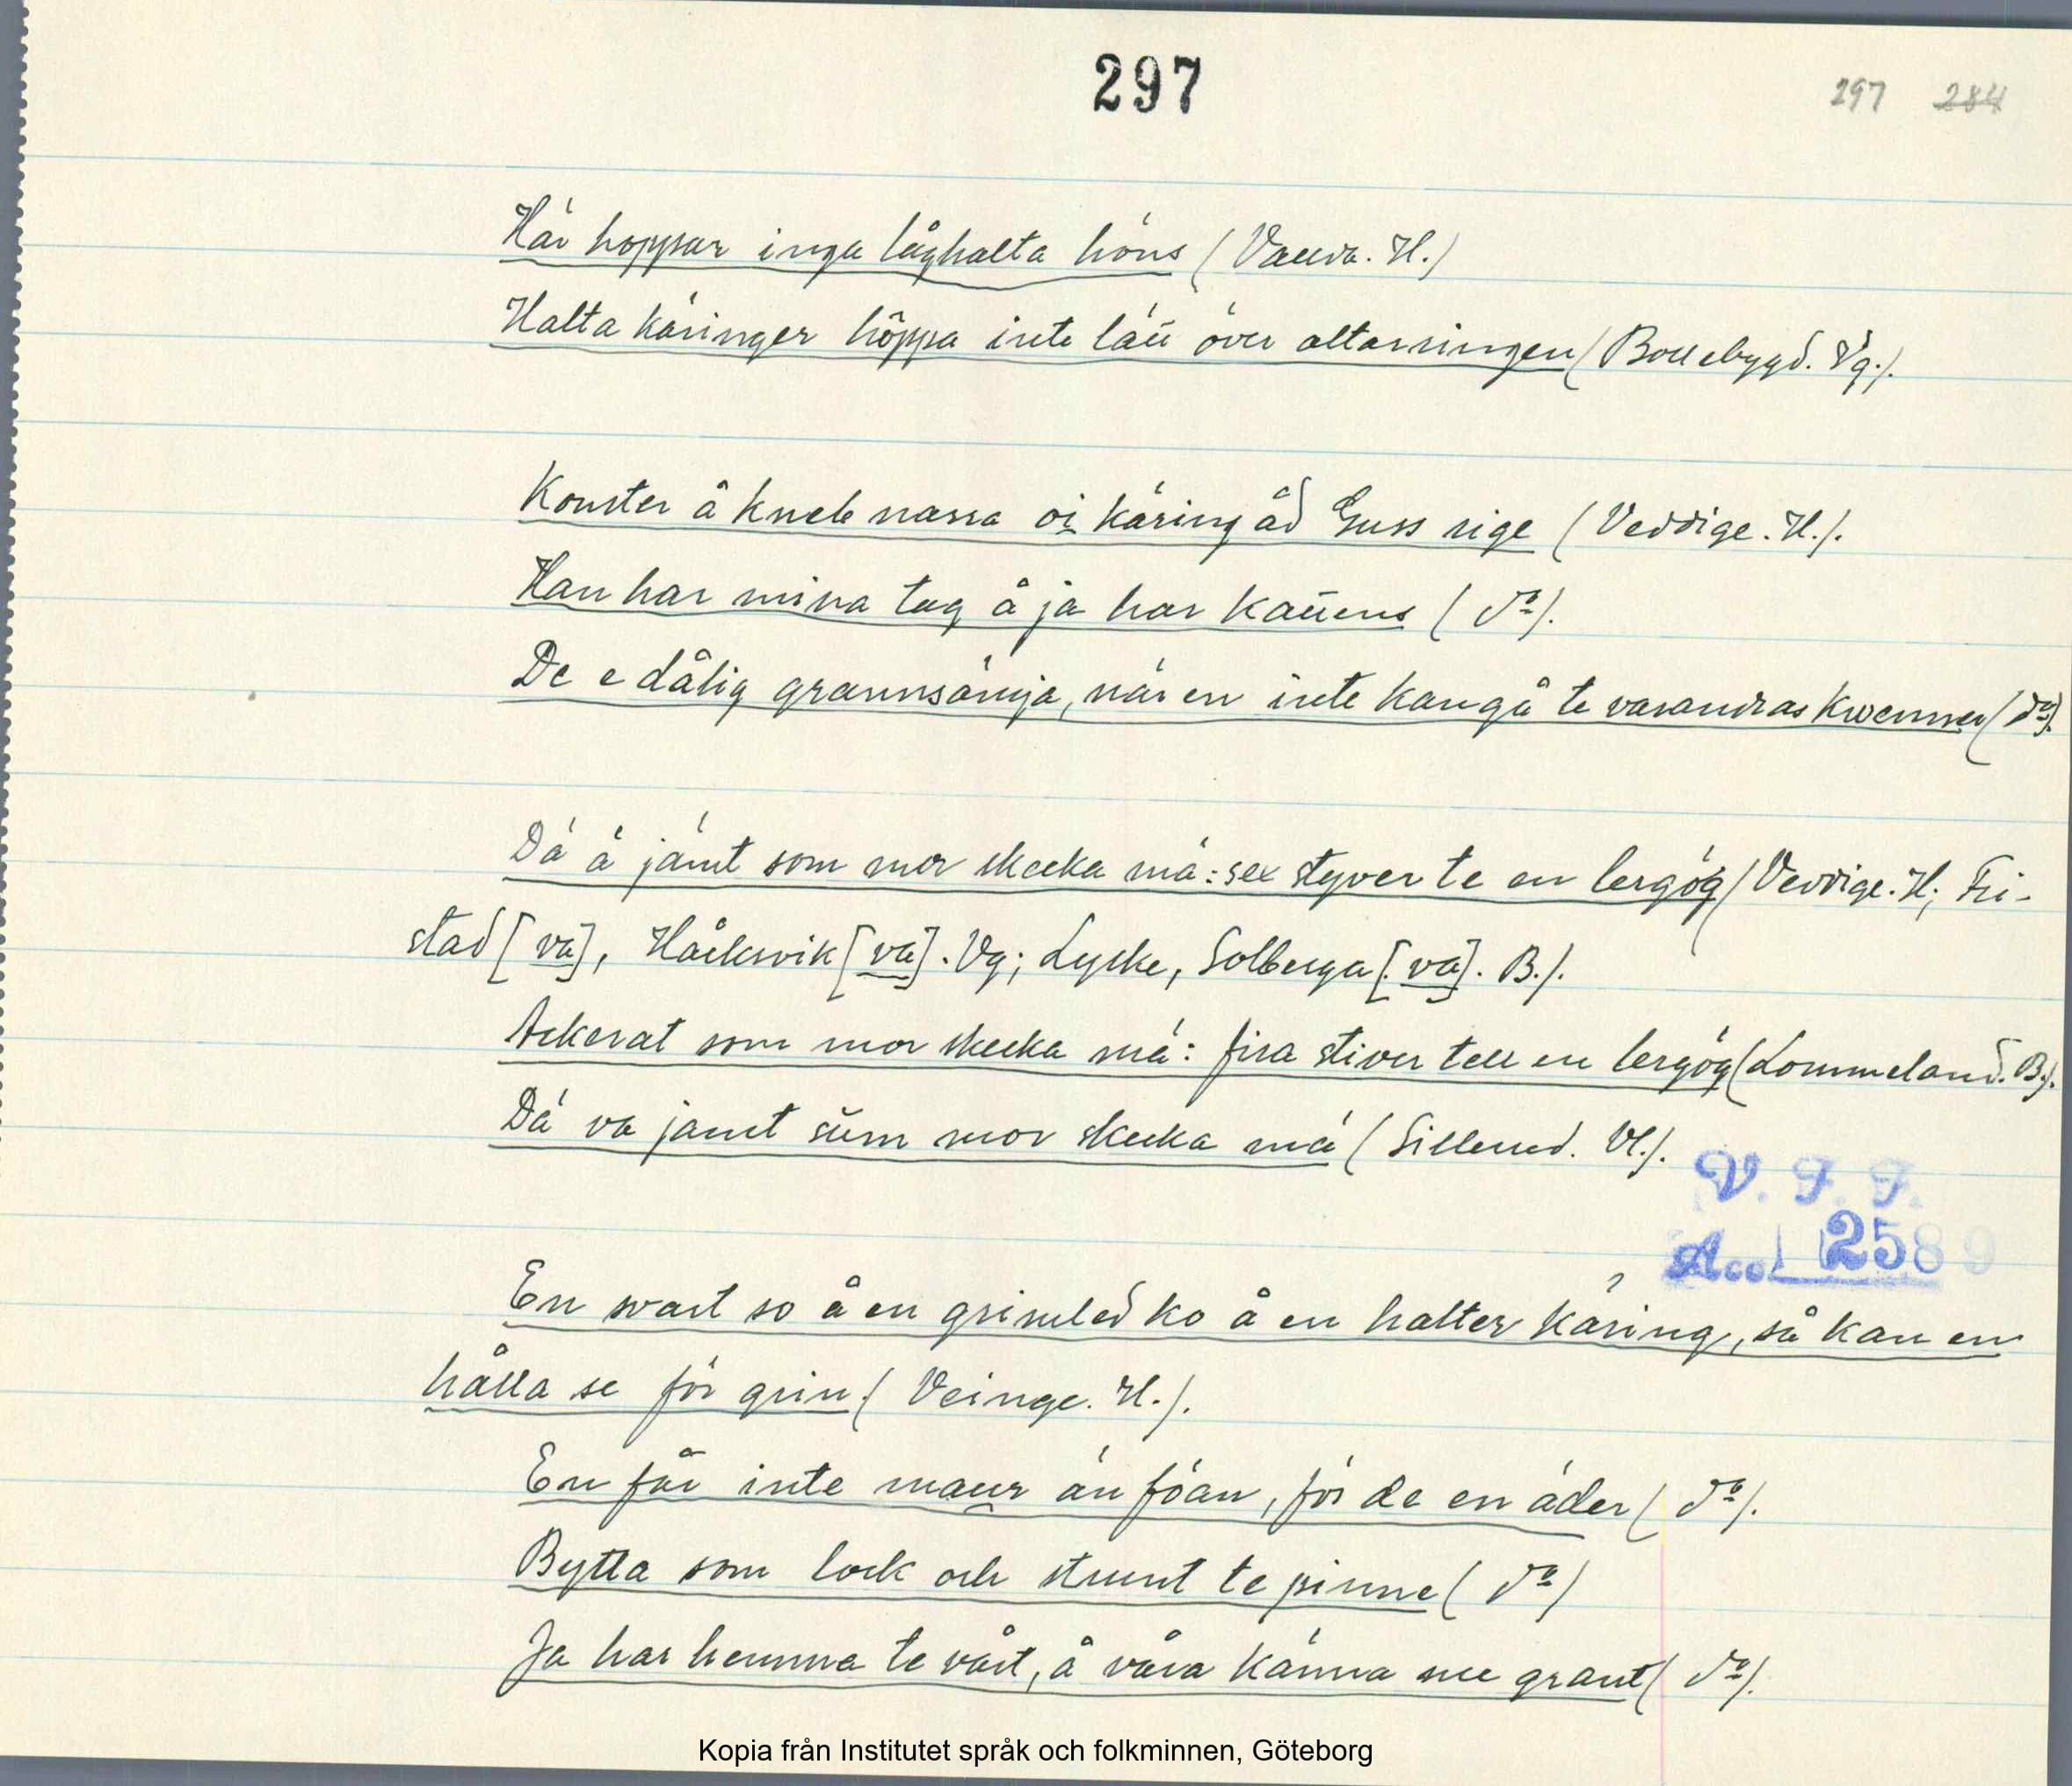 297
297 284
Här hoppar inga låghalta höns (Valda. H.)
Halta käringer höppa inte läll över altarringen (Bollebygd. Vg.).
Konster å kneb narra oi käring åd Guss rige (Veddige. H.).
Han har mina tag å ja har kallens (do).
De e dålig grannsämja, när en inte kan gå te varandras kwenner (do).
Dä ä jämt som mor skecka mä: sex styver te en lergög (Veddige. H; Fri-
stad [va], Håcksvik [va]. Vg; Lycke, Solberga [va]. B.).
Ackerat som mor skecka mä: fira stiver tell en lergög (Lommeland. B.).
Dä va jamt sum mor skecka mä (Sillerud. Vl.).
V. F. F.
Acc. 2589
En svart so å en grimled ko å en halter käring, så kan en
hålla se för grin (Veinge. H.).
En får inte maur än föan, för de en äder (do).
Bytta som lock och strunt te pinne (do)
Ja har hemma te vårt, å våra känna me grant (do).
Kopia från Institutet språk och folkminnen, Göteborg